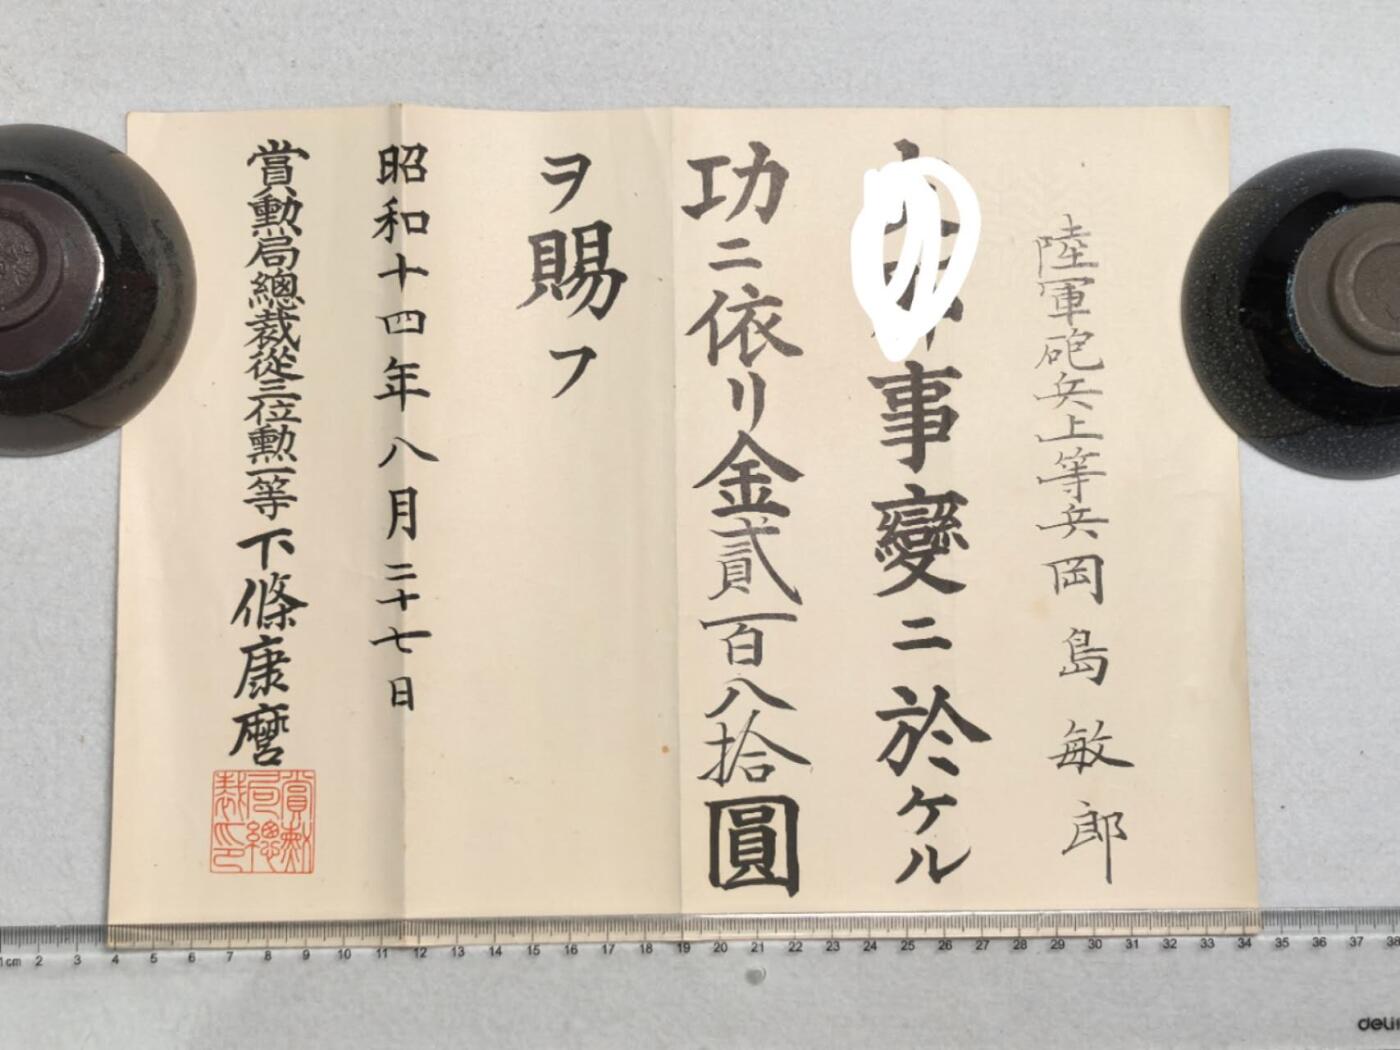 陸軍砲兵上等兵岡島敏郎
事變ニ於ケル
功ニ依リ金貳百八拾圓
ヲ賜フ
昭和十四年八月二十七日
賞勲局總裁從三位勲一等下條康麿
賞勲局總裁印
1cm 2 3 4 5 6 7 8 9 10 11 12 13 14 15 16 17 18 19 20 21 22 23 24 25 26 27 28 29 30 31 32 33 34 35 36 37 38
deli